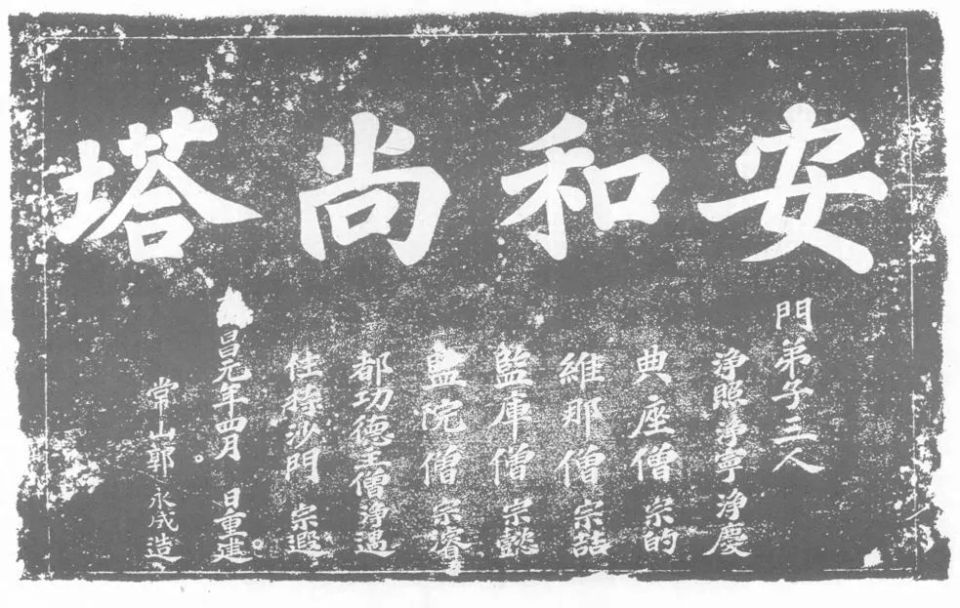 安和尚塔
門弟子三人
淨照淨寧淨慶
典座僧宗的
維那僧宗喆
監庫僧宗懿
監院僧宗濬
都功德主僧淨遇
住持沙門宗遐
昌元年四月 日重建
常山郭永成造